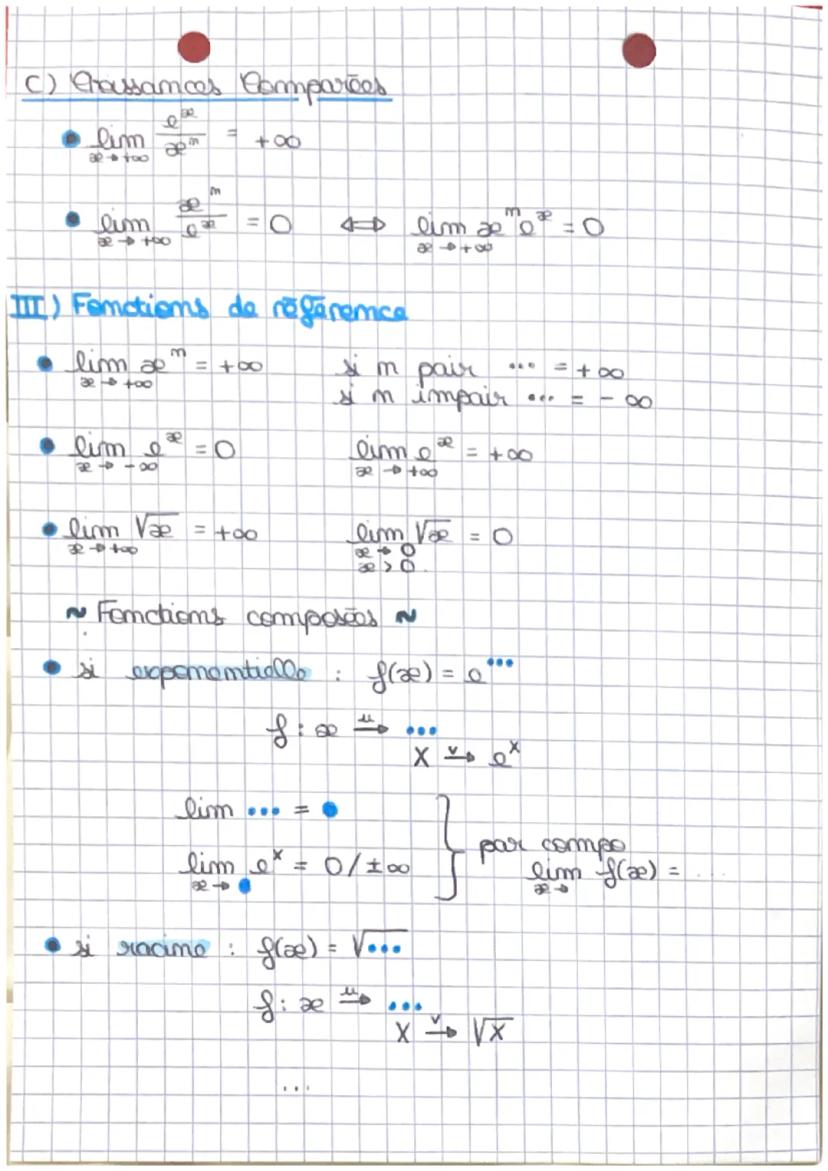 C) Croissances Comparées
• lim x→+∞ eˣ/xⁿ = +∞
• lim x→+∞ xⁿ/eˣ = 0 ⟺ lim x→+∞ xⁿeˣ = 0
III) Fonctions de référence
• lim x→+∞ xⁿ = +∞ si n pair ... = +∞
si n impair ... = -∞
• lim x→-∞ eˣ = 0 lim x→+∞ eˣ = +∞
• lim x→+∞ √x = +∞ lim x→0 x>0 √x = 0
~ Fonctions composées ~
• si exponentielle : f(x) = e^...
f : x →ᵘ ...
X →ᵛ e^X
lim ... = •
lim x→• eˣ = 0/±∞ } par compo
lim x→ f(x) = ...
• si racine : f(x) = √...
f : x →ᵘ ...
X →ᵛ √X
...